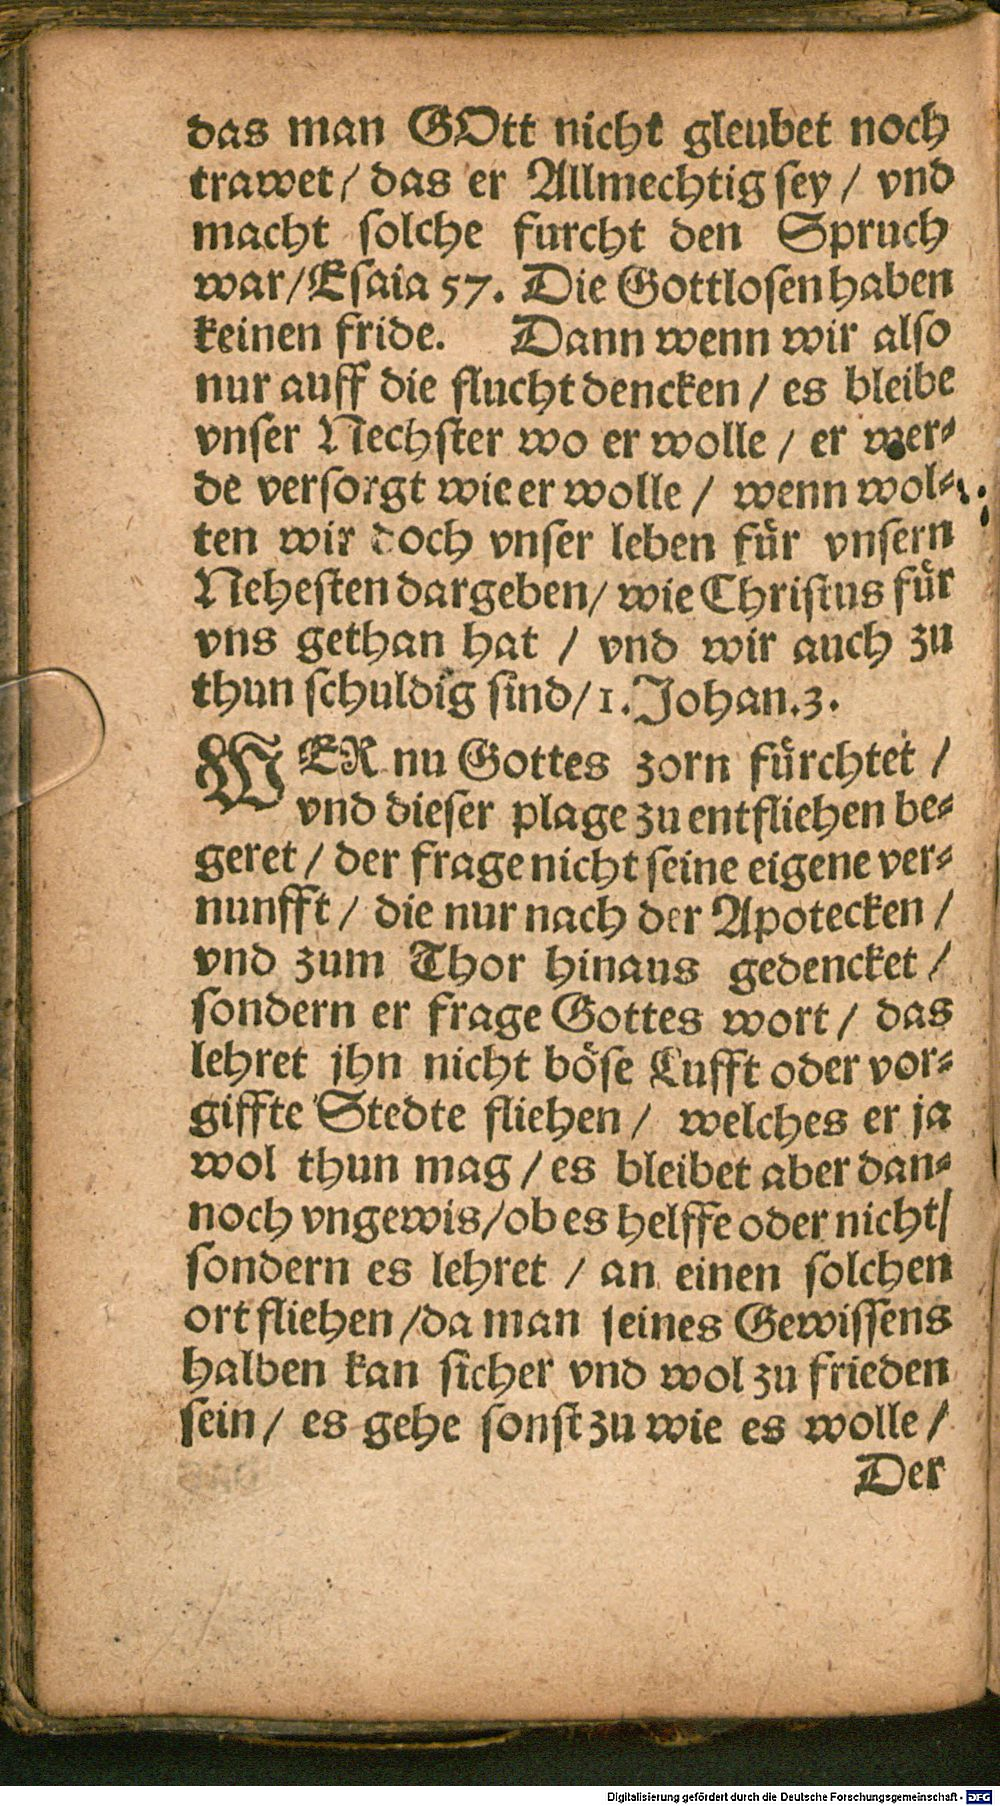 das man GOtt nicht gleubet noch
trawet / das er Allmechtig sey / vnd
macht solche furcht den Spruch
war / Esaia 57. Die Gottlosen haben
keinen fride. Dann wenn wir also
nur auff die flucht dencken / es bleibe
vnser Nechster wo er wolle / er wer⸗
de versorgt wie er wolle / wenn wol⸗
ten wir doch vnser leben für vnsern
Nehesten dargeben / wie Christus für
vns gethan hat / vnd wir auch zu
thun schuldig sind / 1. Johan. 3.
WER nu Gottes zorn fürchtet /
vnd dieser plage zu entfliehen be⸗
geret / der frage nicht seine eigene ver⸗
nunfft / die nur nach der Apotecken /
vnd zum Thor hinaus gedencket /
sondern er frage Gottes wort / das
lehret jhn nicht böse Lufft oder vor⸗
giffte Stedte fliehen / welches er ja
wol thun mag / es bleibet aber dan⸗
noch vngewis / ob es helffe oder nicht /
sondern es lehret / an einen solchen
ort fliehen / da man seines Gewissens
halben kan sicher vnd wol zu frieden
sein / es gehe sonst zu wie es wolle /
Der
Digitalisierung gefördert durch die Deutsche Forschungsgemeinschaft - DFG